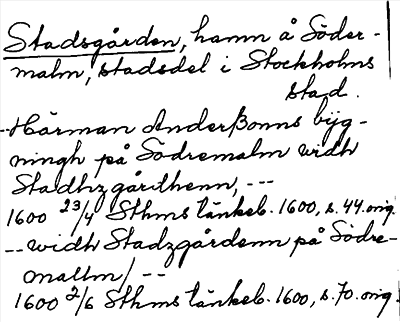 Stadsgården, hamn å Söder-
malm, stadsdel i Stockholms
stad.
--Härman Anderßonns byg-
ningh på Södremalm widh
Stadhzgårdhenn, ---
1600 23/4 Sthms tänkeb. 1600, s. 44. orig.
-- widh Stadzgårdenn på Södre-
mallm/ --
1600 2/6 Sthms tänkeb. 1600, s. 70. orig.